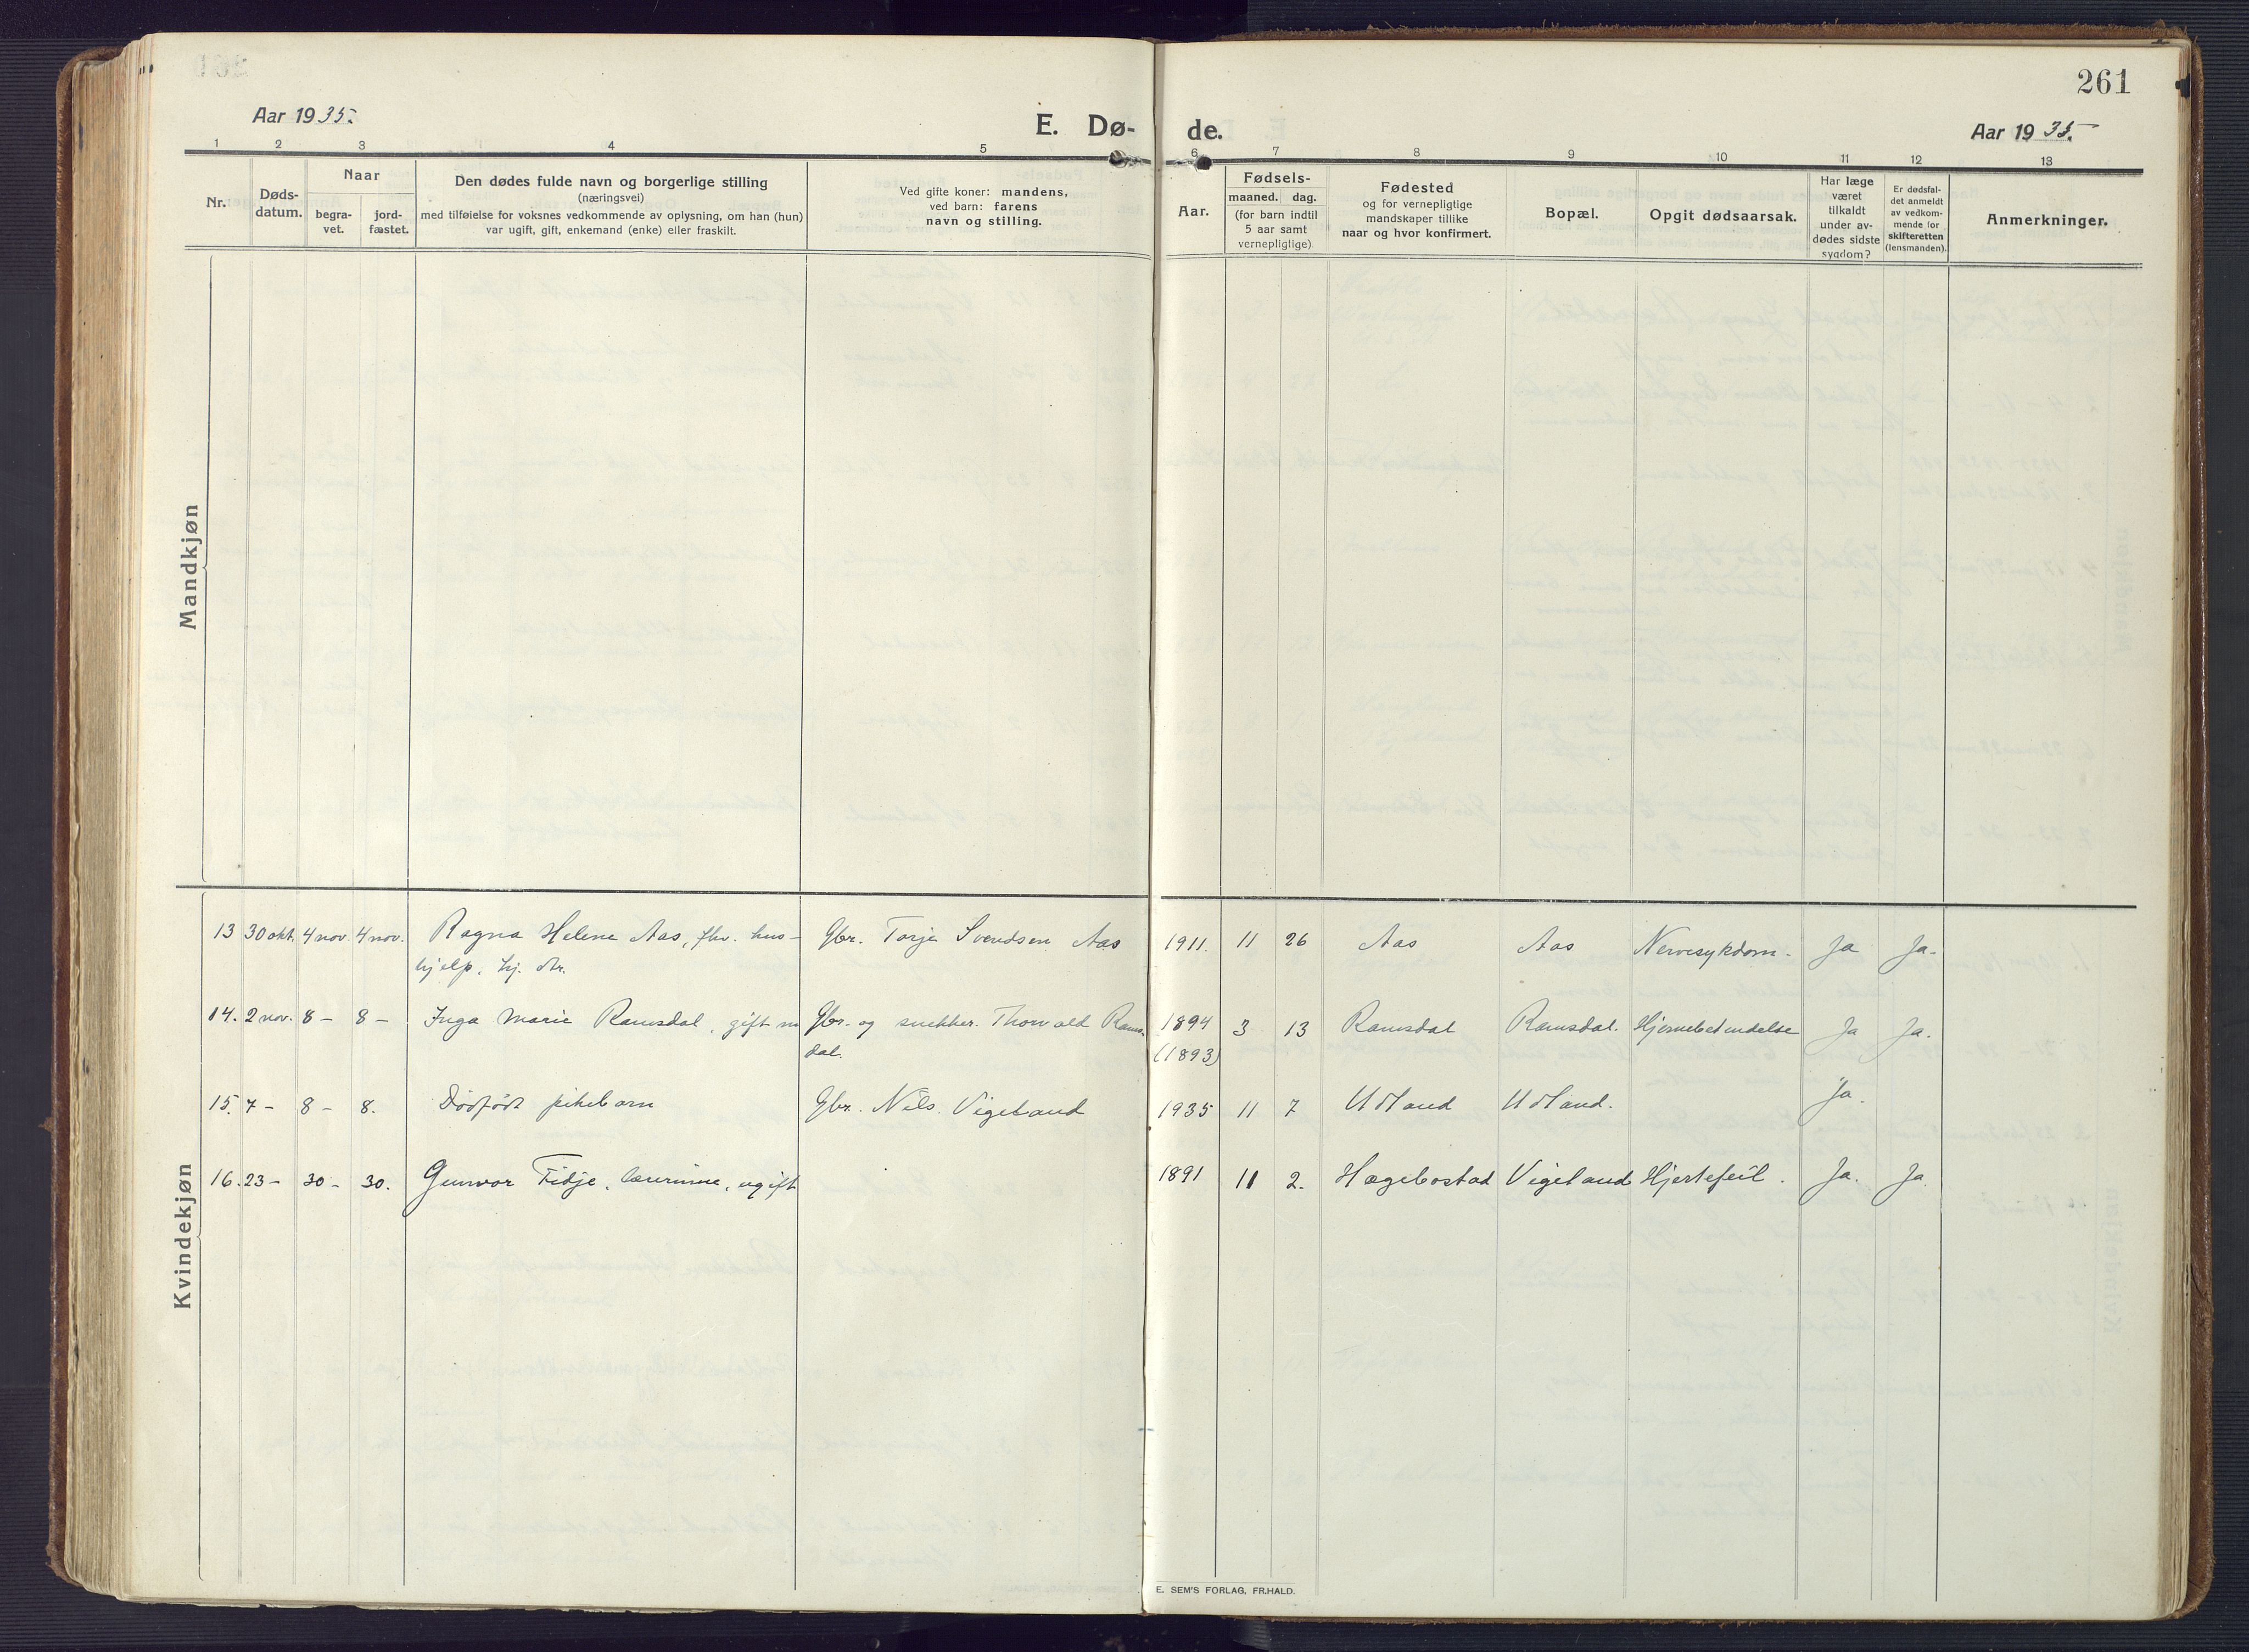 261
Aar 1935.
E. Dø-
de.
Aar 1935.
1 2 3 4 5 6 7 8 9 10 11 12 13
Nr.
Døds-
datum.
Naar
begra-
vet.
jord-
fæstet.
Den dødes fulde navn og borgerlige stilling
(næringsvei)
med tilføielse for voksnes vedkommende av oplysning, om han (hun)
var ugift, gift, enkemand (enke) eller fraskilt.
Ved gifte koner: mandens,
ved barn: farens
navn og stilling.
Aar.
Fødsels-
maaned. dag.
(for barn indtil
5 aar samt
vernepligtige)
Fødested
og for vernepligtige
mandskaper tillike
naar og hvor konfirmert.
Bopæl.
Opgit dødsaarsak.
Har læge
været
tilkaldt
under av-
dødes sidste
sygdom?
Er dødsfal-
det anmeldt
av vedkom-
mende for
skifteretten
(lensmanden).
Anmerkninger.
Mandkjøn
Kvindekjøn
13 30 okt. 4 nov. 4 nov. Ragna Helene Aas, fhv. hus- Gbr. Torje Svendsen Aas 1911. 11 26 Aas Aas Nervesykdom. Ja Ja.
hjelp, hj. dtr.
14. 2 nov. 8 - 8 - Inga Marie Ramsdal, gift m Gbr. og snekker. Thorvald Rams- 1894 3 13 Ramsdal Ramsdal. Hjernebetendelse Ja Ja.
dal. (1893)
15. 7 - 8 - 8. Dødfødt pikebarn Gbr. Nils Vigeland 1935 11 7 Udland Udland. Ja.
16. 23 - 30 - 30. Gunvor Fidje, lærerinne, ugift 1891 11 2. Hægebostad Vigeland Hjertefeil. Ja. Ja.
E. SEM'S FORLAG, FR.HALD.